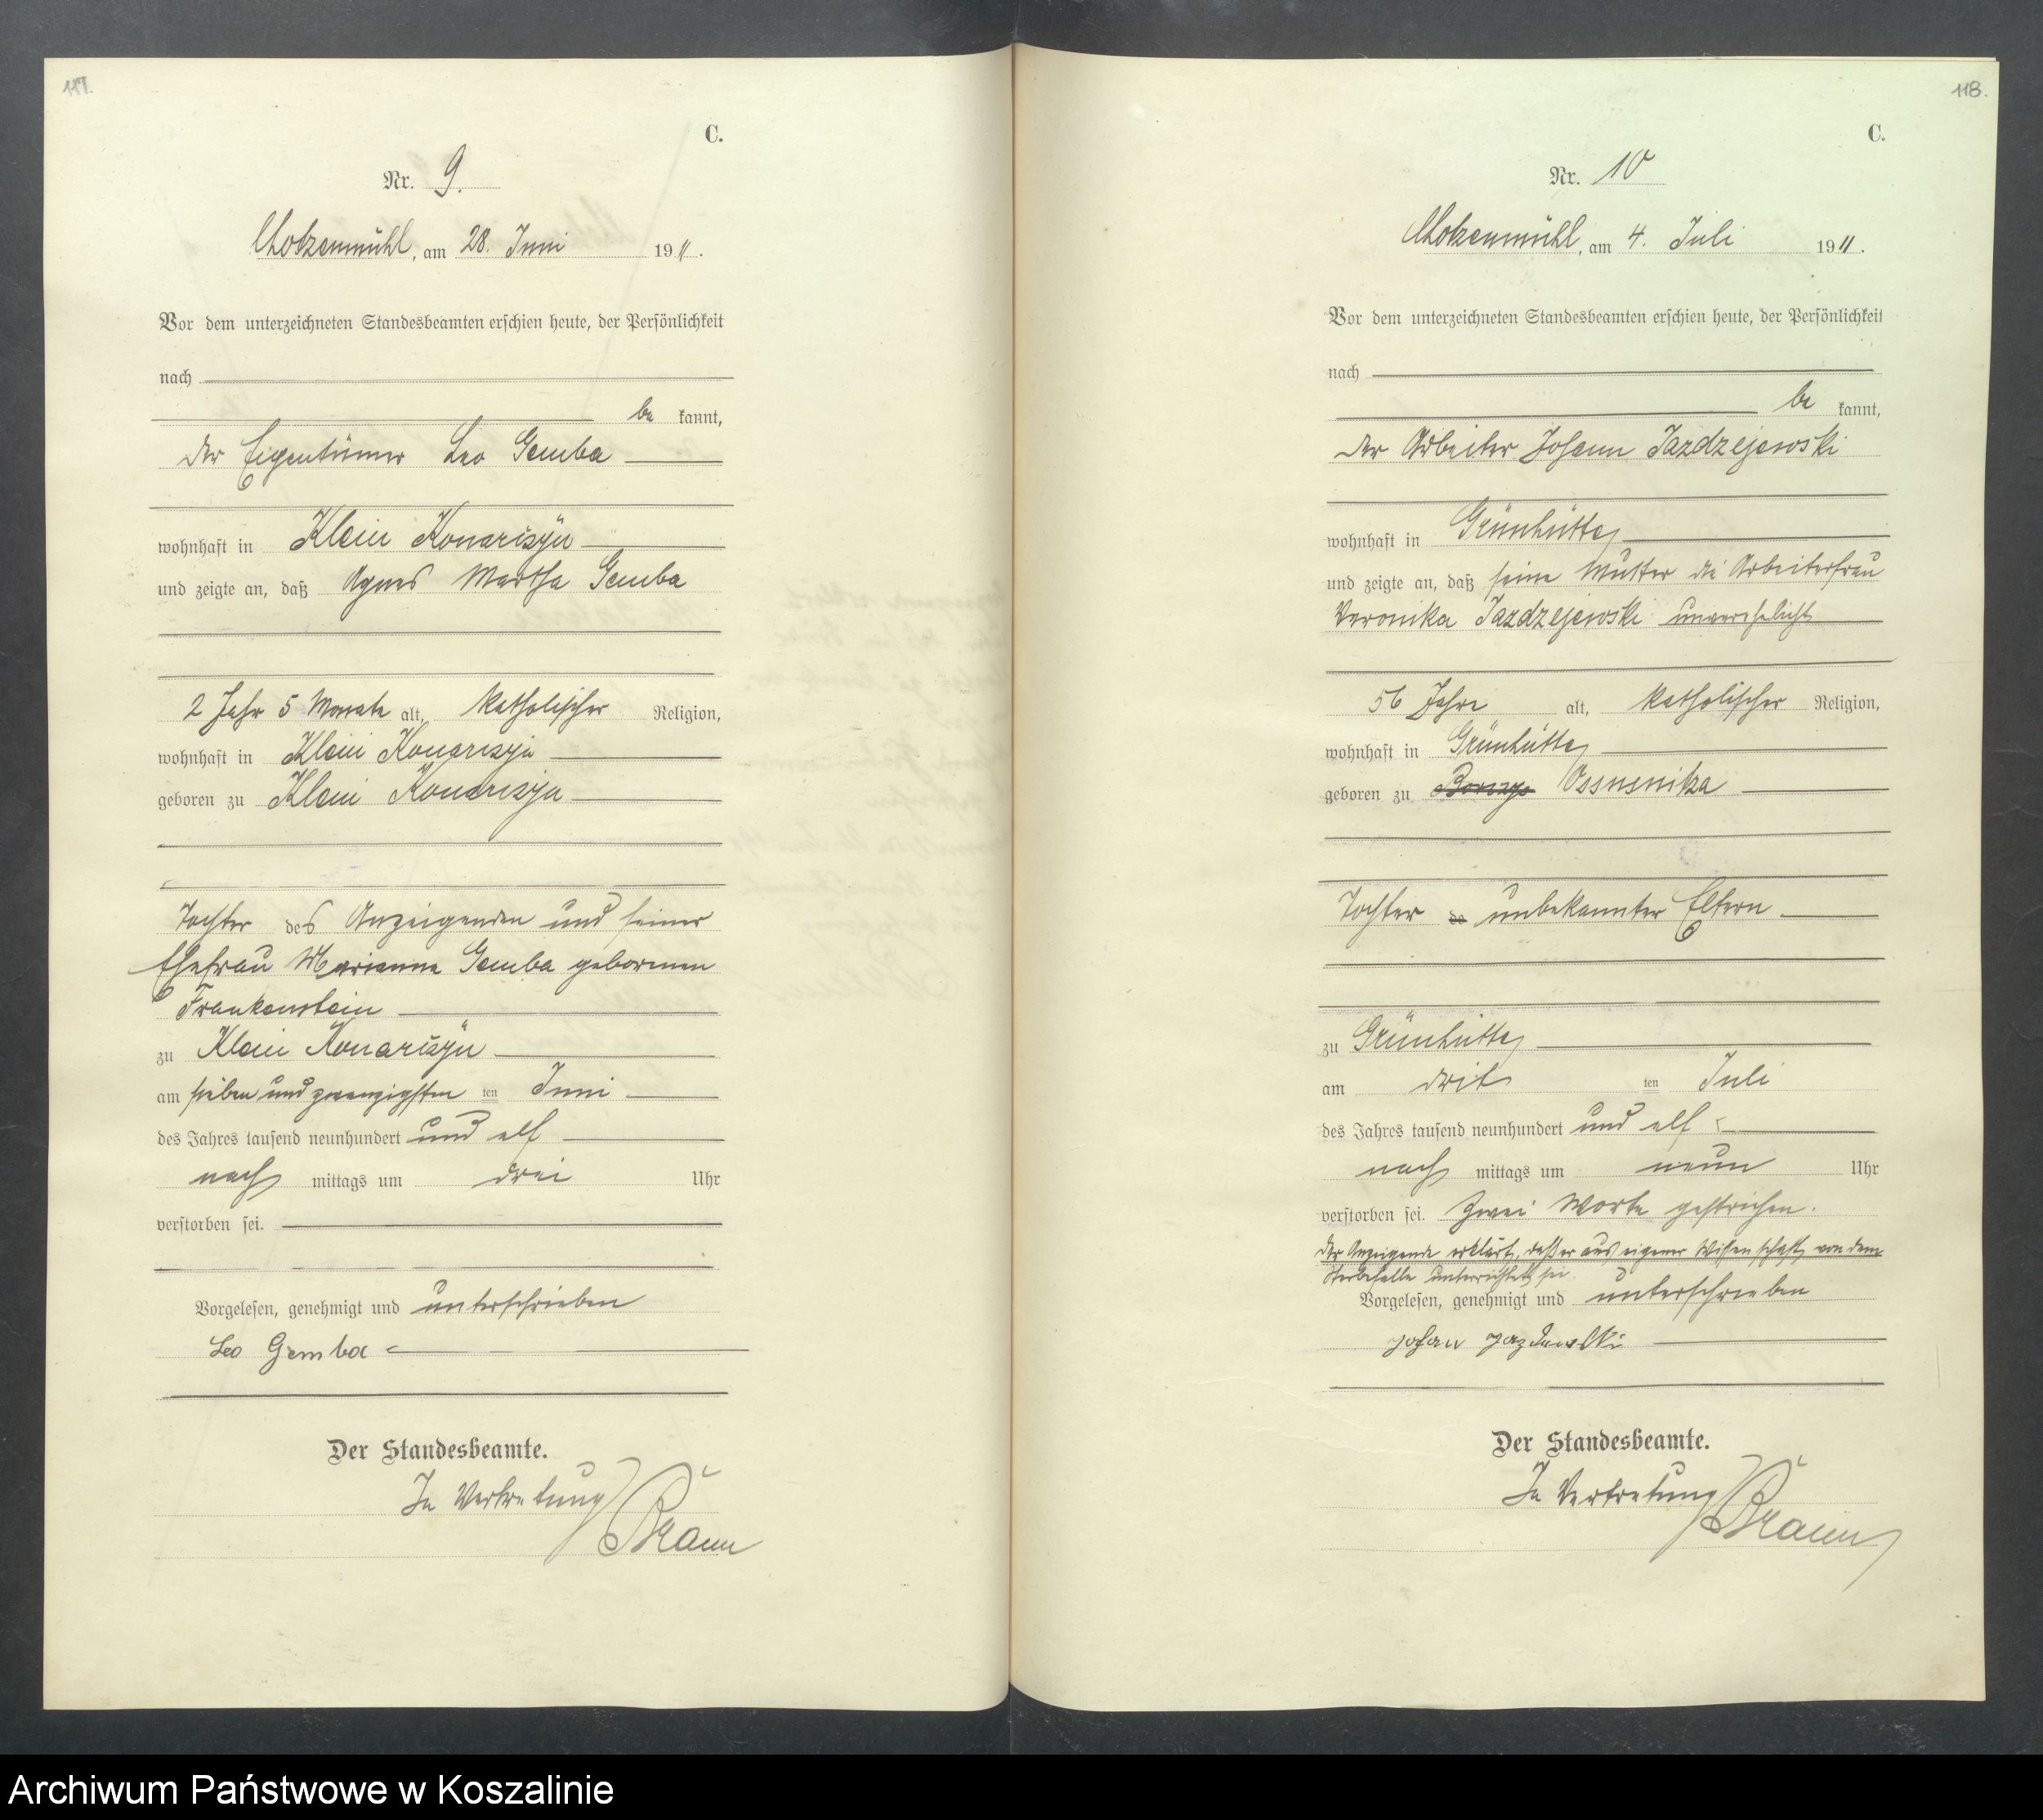 117.
C.
Nr. 9.
Chotzenmühl, am 28. Juni 1911.
Vor dem unterzeichneten Standesbeamten erschien heute, der Persönlichkeit
nach
be kannt,
der Eigentümer Leo Gemba
wohnhaft in Klein Konarczyn
und zeigte an, daß Agnes Martha Gemba
2 Jahr 5 Monate alt, katholischer Religion,
wohnhaft in Klein Konarczyn
geboren zu Klein Konarczyn
Tochter des Anzeigenden und seiner
Ehefrau Marianna Gemba geborenen
Frankenstein
zu Klein Konarczyn
am sieben und zwanzigsten ten Juni
des Jahres tausend neunhundert und elf
nach mittags um drei Uhr
verstorben sei.
Vorgelesen, genehmigt und unterschrieben
Leo Gemba
Der Standesbeamte.
In Vertretung
Braun
118.
C.
Nr. 10
Chotzenmühl, am 4. Juli 1911.
Vor dem unterzeichneten Standesbeamten erschien heute, der Persönlichkeit
nach
be kannt,
der Arbeiter Johann Jazdzejewski
wohnhaft in Grünhütte
und zeigte an, daß seine Mutter die Arbeiterfrau
Veronika Jazdzejewski unverehelicht
56 Jahre alt, katholischer Religion,
wohnhaft in Grünhütte
geboren zu Ossusnitza
Tochter de unbekannter Eltern
zu Grünhütte
am drit ten Juli
des Jahres tausend neunhundert und elf
nach mittags um neun Uhr
verstorben sei. Zwei Worte gestrichen.
Der Anzeigende erklärt, daß er aus eigener Wissenschaft von dem
Sterbefalle unterrichtet sei.
Vorgelesen, genehmigt und unterschrieben
Johan
Der Standesbeamte.
In Vertretung
Braun
Archiwum Państwowe w Koszalinie